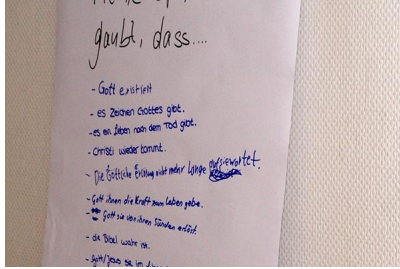 gaubt, dass....
- Gott existiert
- es Zeichen Gottes gibt.
- es ein Leben nach dem Tod gibt.
- Christi wieder kommt.
- Die Göttliche Erlösung nicht mehr lange auf s. wartet.
- Gott ihnen die Kraft zum Leben gebe.
- Gott sie von ihren Sünden erlöst.
- die Bibel wahr ist.
- Gott/Jesus sie im